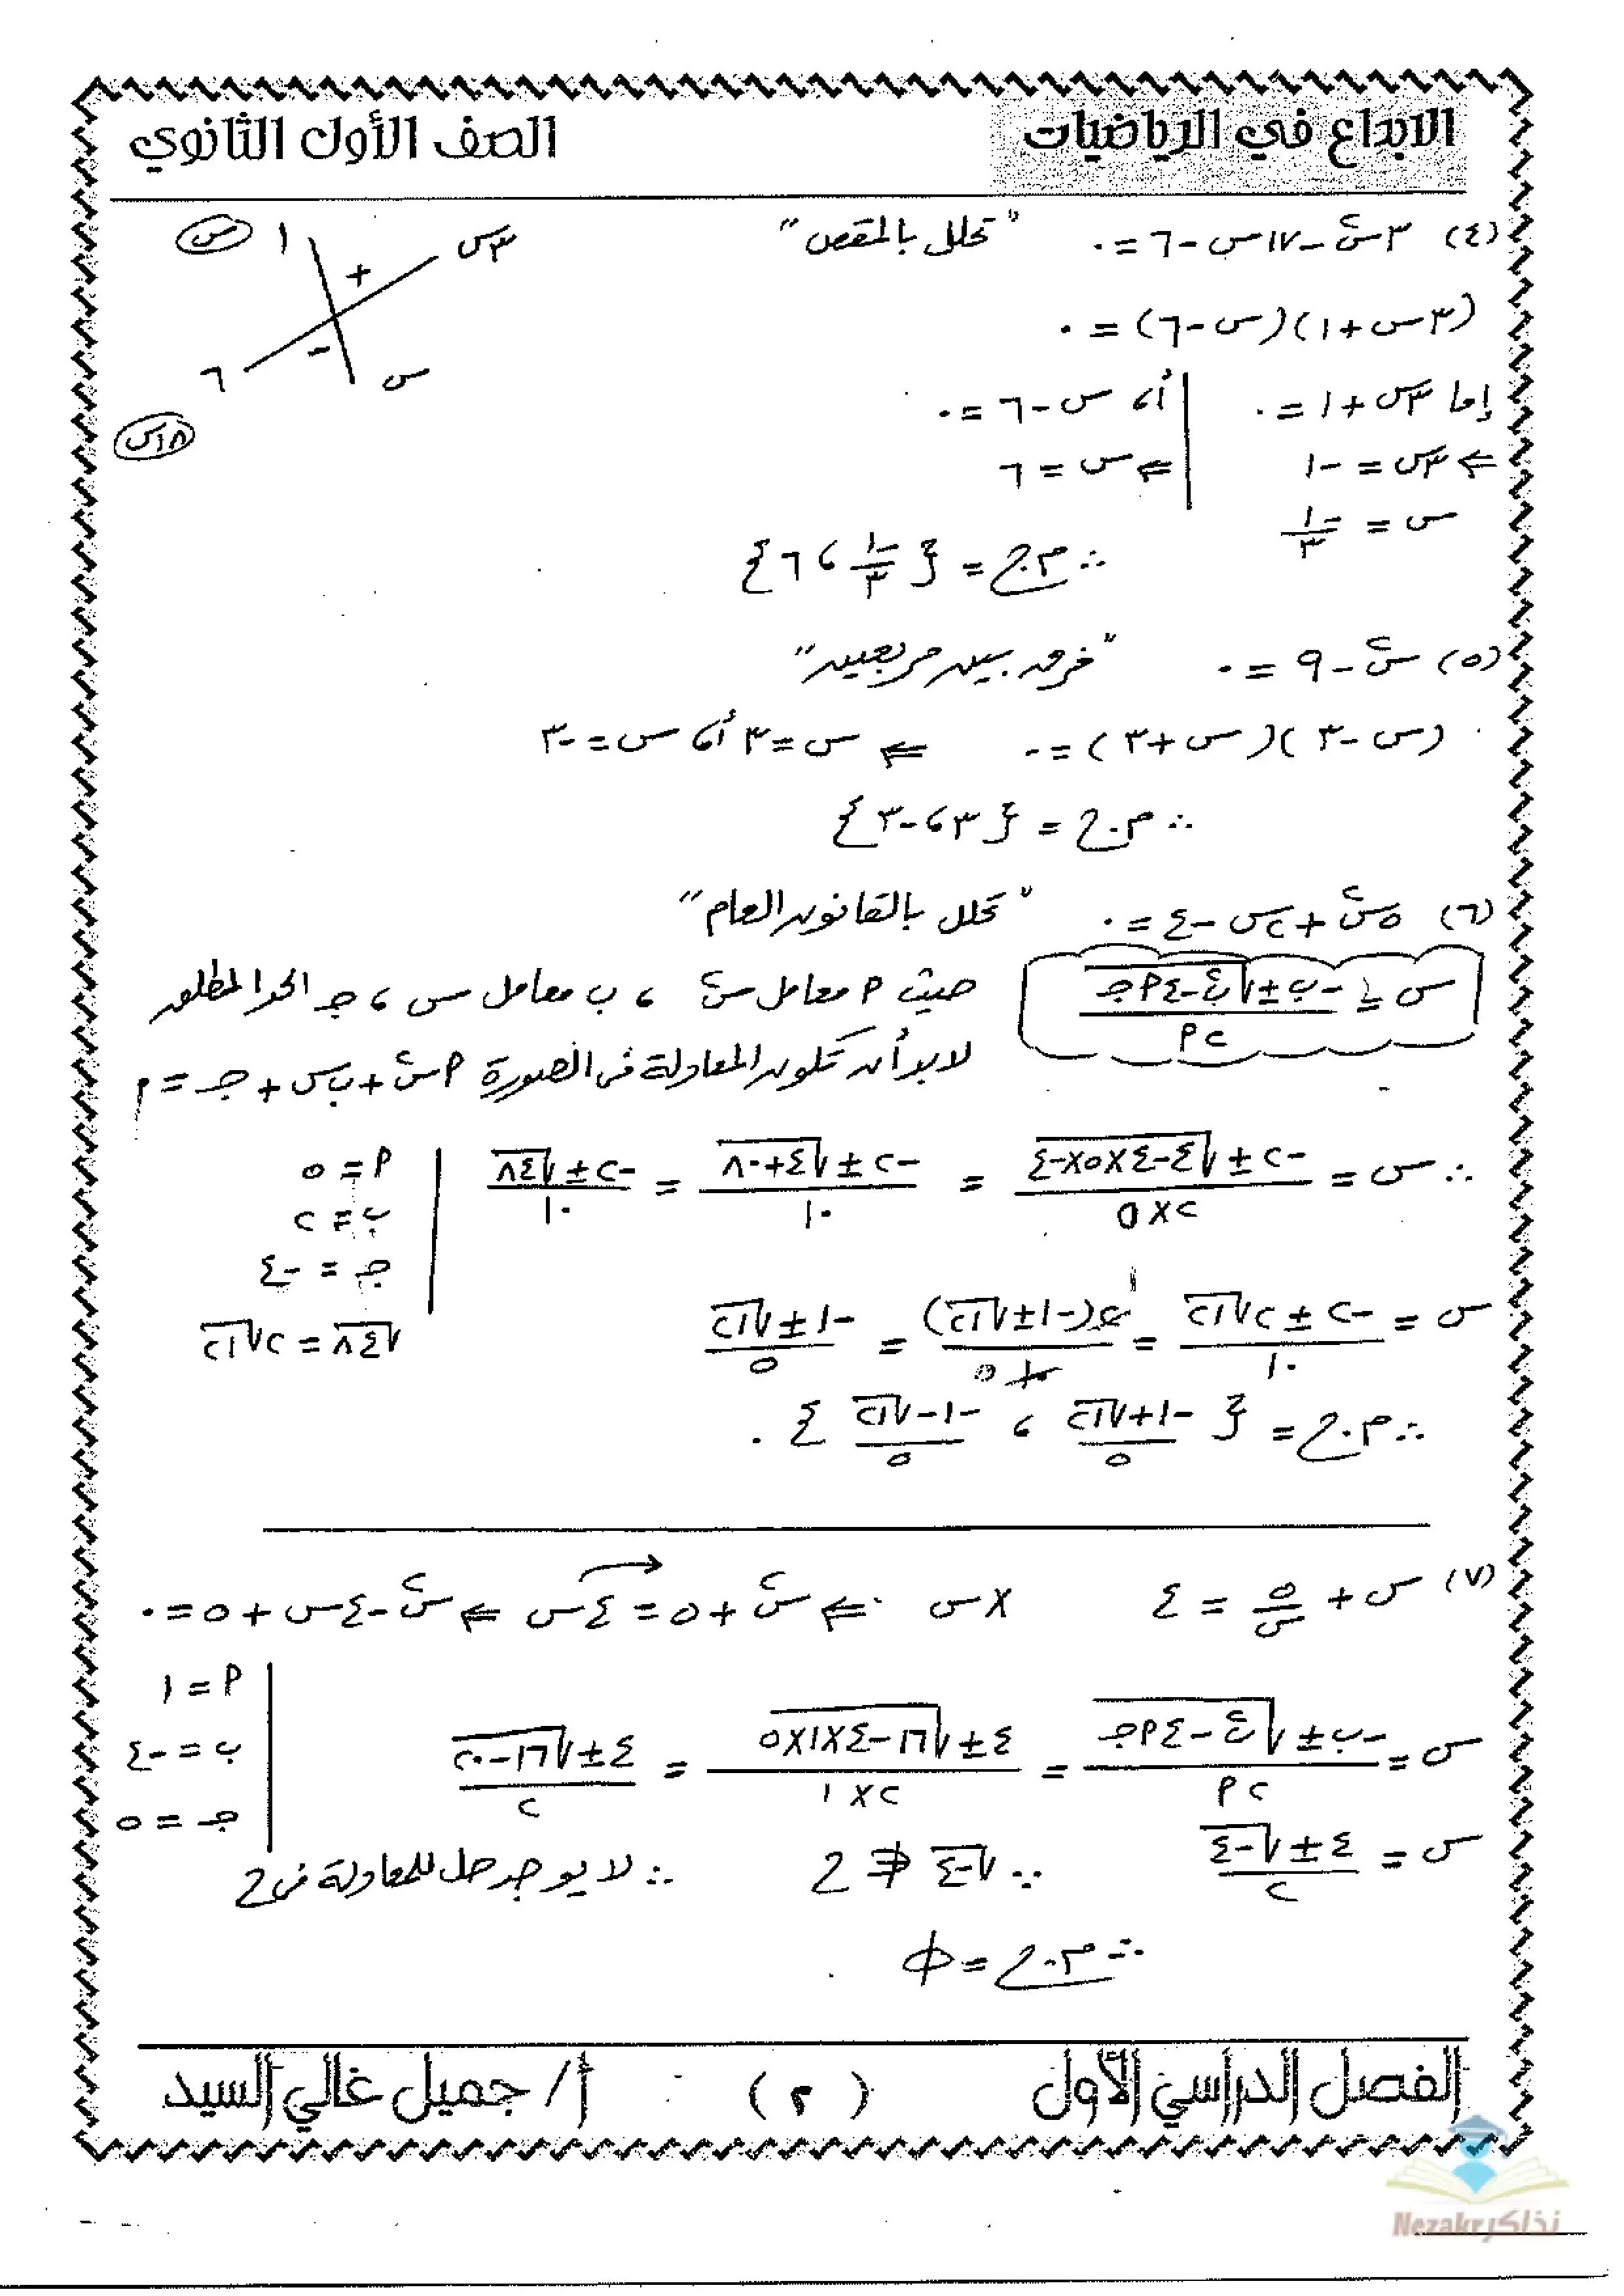 الابداع في الرياضيات الصف الأول الثانوي
(٤) ٣س٢ - ١٧س - ٦ = ٠ "تحلل بالمقص"
٣س + ١ س
س - ٦ ١٨س
(٣س + ١)(س - ٦) = ٠
إما ٣س + ١ = ٠ أ، س - ٦ = ٠
⇐ ٣س = -١ ⇐ س = ٦
س = -١/٣
∴ م.ح = {-١/٣ ، ٦}
(٥) س٢ - ٩ = ٠ "فرق بين مربعين"
(س - ٣)(س + ٣) = ٠ ⇐ س = ٣ أ، س = -٣
∴ م.ح = {٣ ، -٣}
(٦) ٥س٢ + ٢س - ٤ = ٠ "تحلل بالقانون العام"
س = (-ب ± √(ب٢ - ٤أجـ)) / ٢أ حيث أ معامل س٢ ، ب معامل س ، جـ الحد المطلق
لابد أن تكون المعادلة في الصورة أس٢ + ب س + جـ = ٠
∴ س = (-٢ ± √(٤ - ٤×٥×-٤)) / ٢×٥ = (-٢ ± √(٤ + ٨٠)) / ١٠ = (-٢ ± √٨٤) / ١٠
أ = ٥
ب = ٢
جـ = -٤
س = (-٢ ± ٢√٢١) / ١٠ = ٢(-١ ± √٢١) / ١٠ ٥ = (-١ ± √٢١) / ٥ √٨٤ = ٢√٢١
∴ م.ح = {(-١ + √٢١) / ٥ ، (-١ - √٢١) / ٥}
(٧) س + ٥/س = ٤ × س ⇐ س٢ + ٥ = ٤س ⇐ س٢ - ٤س + ٥ = ٠
س = (-ب ± √(ب٢ - ٤أجـ)) / ٢أ = (٤ ± √(١٦ - ٤×١×٥)) / ٢×١ = (٤ ± √(١٦ - ٢٠)) / ٢
أ = ١
ب = -٤
جـ = ٥
س = (٤ ± √-٤) / ٢ ∵ √-٤ ∉ ح ∴ لا يوجد حل للمعادلة في ح
∴ م.ح = φ
الفصل الدراسي الأول (٢) أ/ جميل غالي السيد
نذاكر Nezakr